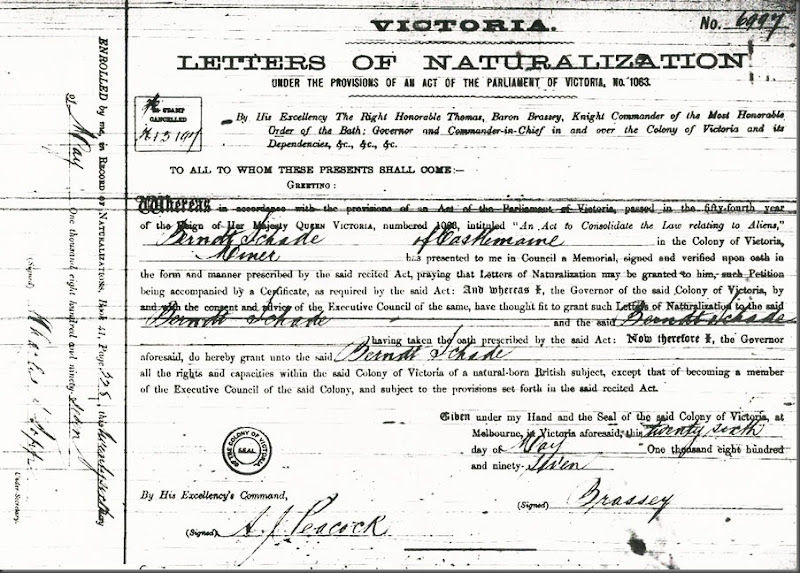 VICTORIA.
No. 6997
LETTERS OF NATURALIZATION
UNDER THE PROVISIONS OF AN ACT OF THE PARLIAMENT OF VICTORIA, No. 1063.
STAMP
CANCELLED
By His Excellency The Right Honorable Thomas, Baron Brassey, Knight Commander of the Most Honorable
Order of the Bath; Governor and Commander-in-Chief in and over the Colony of Victoria and its
Dependencies, &c., &c., &c.
TO ALL TO WHOM THESE PRESENTS SHALL COME:—
GREETING:
Whereas in accordance with the provisions of an Act of the Parliament of Victoria, passed in the fifty-fourth year
of the Reign of Her Majesty QUEEN VICTORIA, numbered 1063, intituled "An Act to Consolidate the Law relating to Aliens,"
Berndt Schade of Castlemaine in the Colony of Victoria,
Miner has presented to me in Council a Memorial, signed and verified upon oath in
the form and manner prescribed by the said recited Act, praying that Letters of Naturalization may be granted to him, such Petition
being accompanied by a Certificate, as required by the said Act: And whereas I, the Governor of the said Colony of Victoria, by
and with the consent and advice of the Executive Council of the same, have thought fit to grant such Letters of Naturalization to the said
Berndt Schade and the said Berndt Schade
having taken the oath prescribed by the said Act: Now therefore I, the Governor
aforesaid, do hereby grant unto the said Berndt Schade
all the rights and capacities within the said Colony of Victoria of a natural-born British subject, except that of becoming a member
of the Executive Council of the said Colony, and subject to the provisions set forth in the said recited Act.
Given under my Hand and the Seal of the said Colony of Victoria, at
Melbourne, in Victoria aforesaid, this twenty sixth
day of May One thousand eight hundred
and ninety-seven
OF THE COLONY OF VICTORIA
SEAL
By His Excellency's Command,
(Signed) Brassey
(Signed) A. J. Peacock
ENROLLED by me, in RECORD OF NATURALIZATIONS, Book 41, Page 325, this twenty sixth day
of May One thousand eight hundred and ninety seven
(Signed) Charles
Under-Secretary.